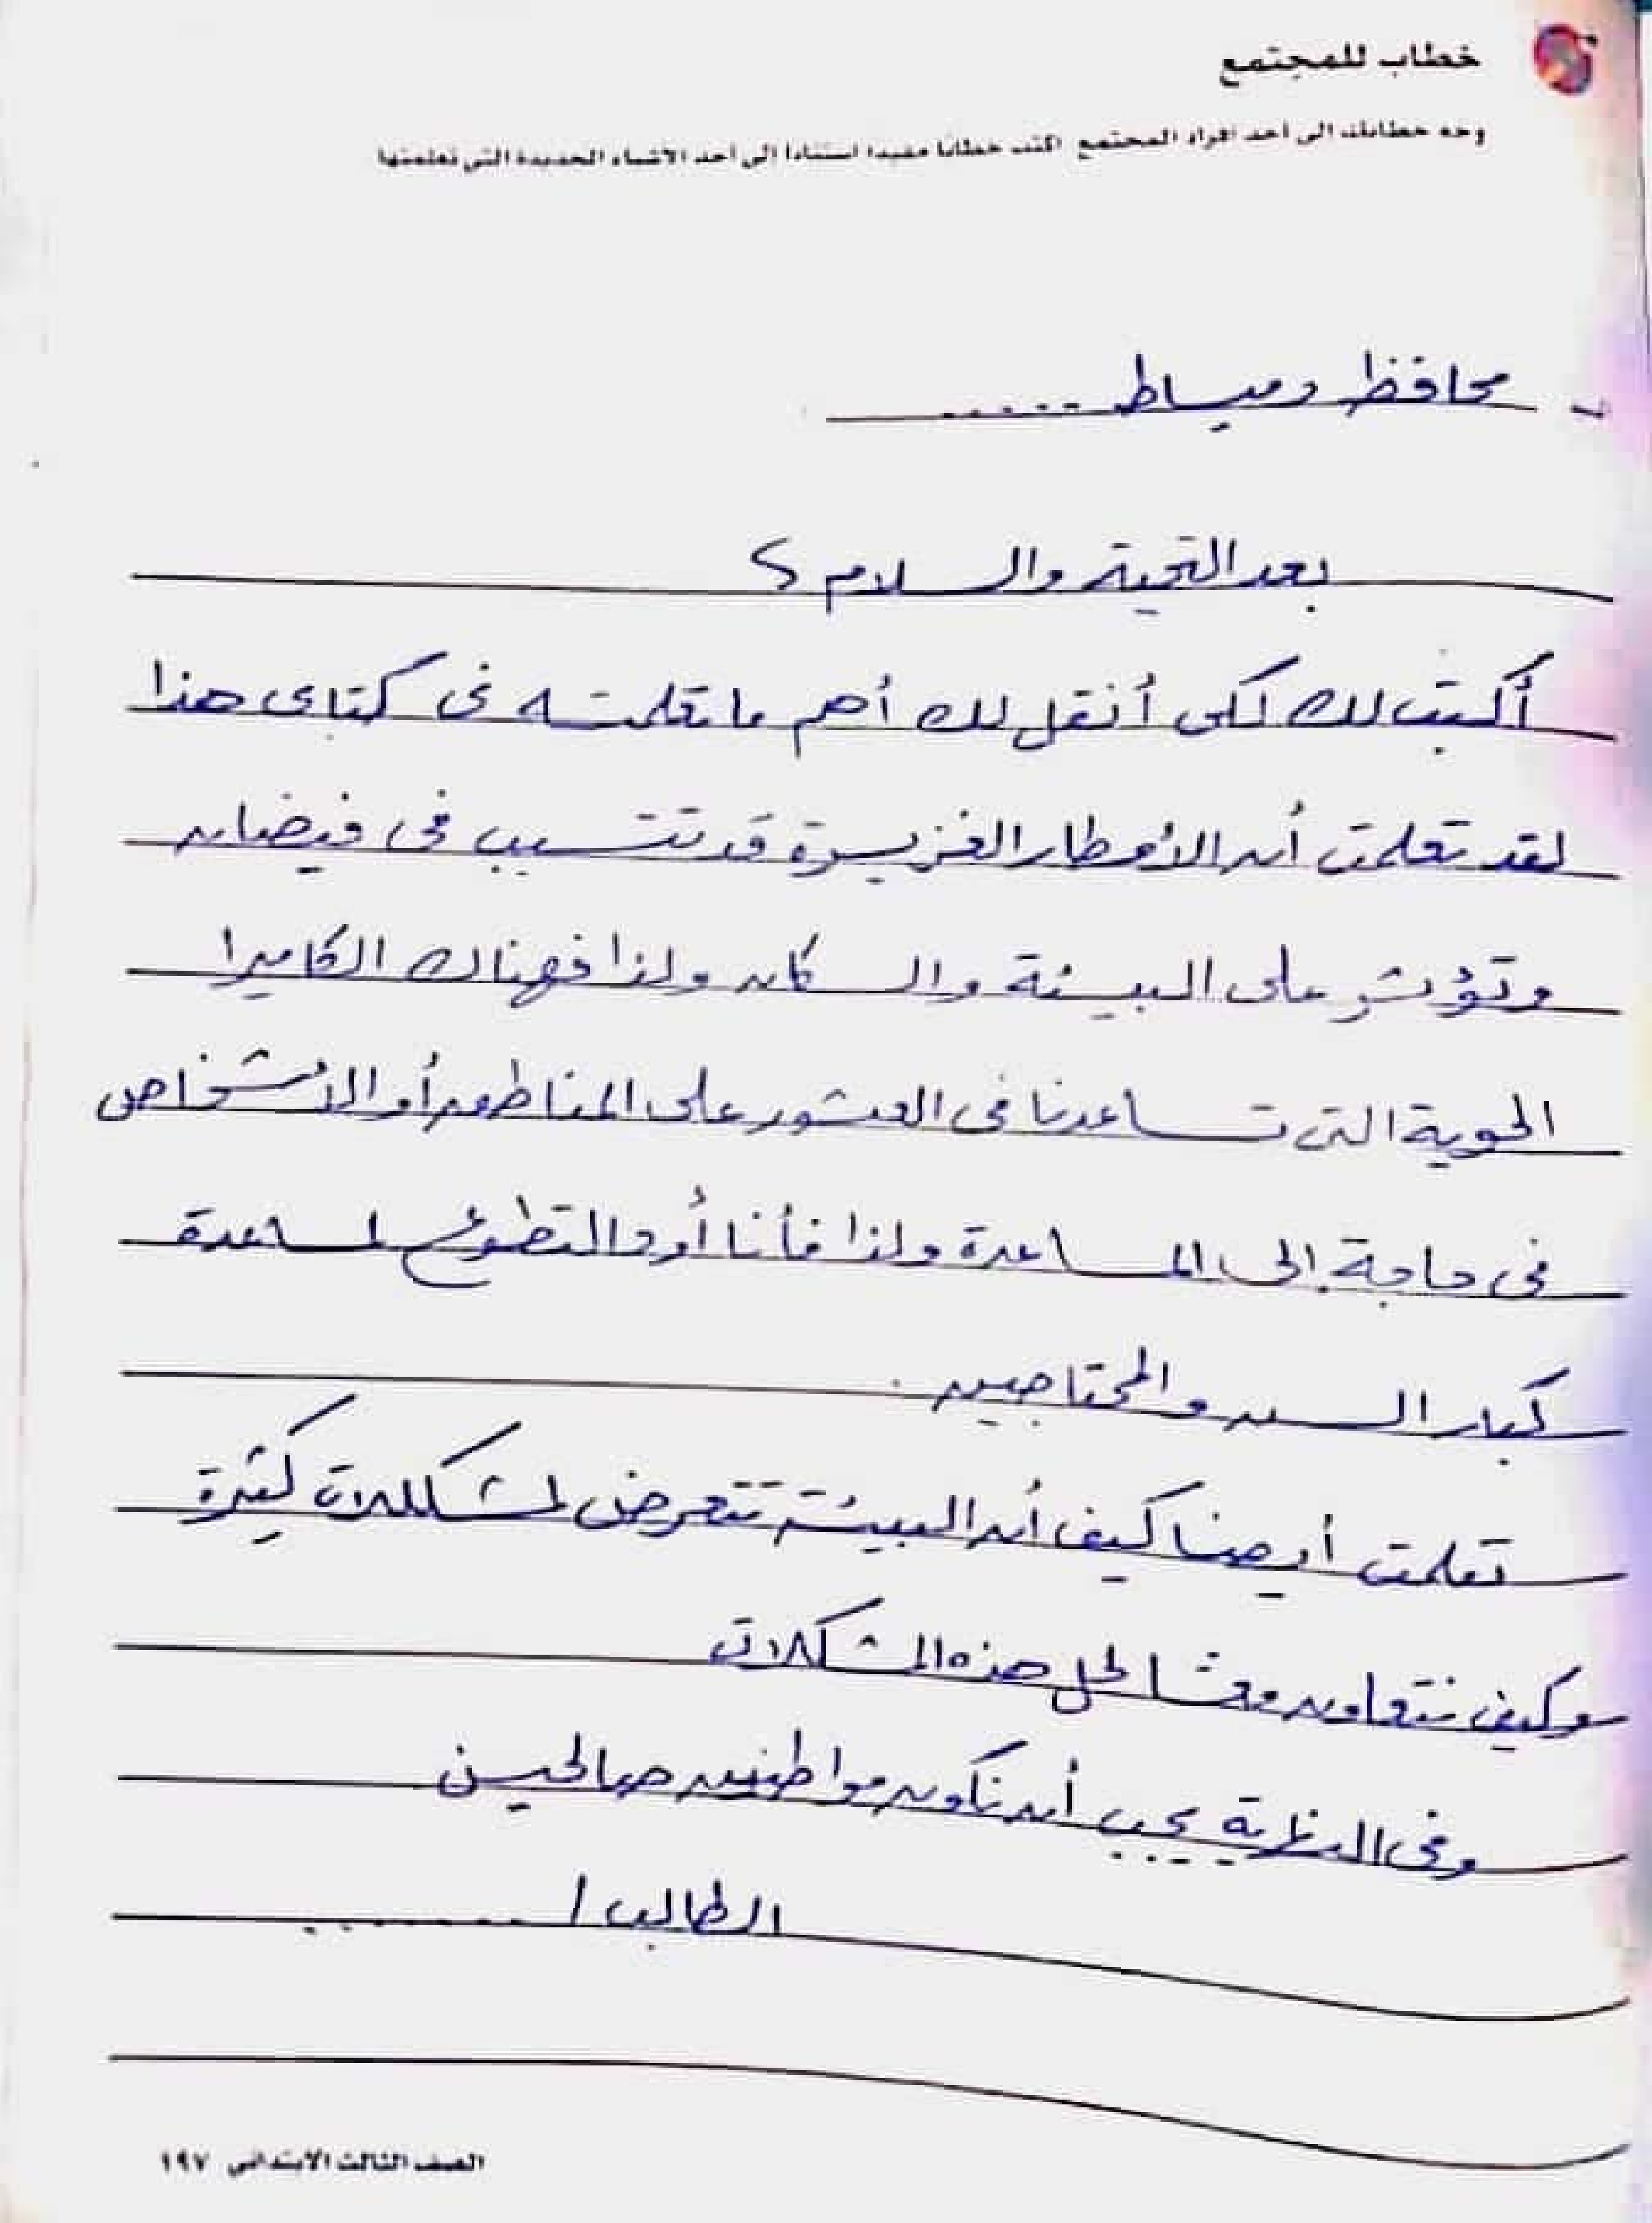 خطاب للمجتمع
وجه خطابك إلى أحد أفراد المجتمع اكتب خطابا مفيدا استنادا إلى أحد الأشياء الجديدة التي تعلمتها
محافظ دمياط .....
بعد التحية والسلام؟
أكتب لك لكى أنقل لك أهم ما تعلمته فى كتابى هذا
لقد تعلمت أن الأمطار الغزيرة قد تتسبب فى فيضان
وتؤثر على البيئة والسكان ولذا فهناك الكاميرا
الجوية التى تساعدنا فى العثور على المناطق أو الأشخاص
فى حاجة إلى المساعدة ولذا فأنا أود التطوع لمساعدة
كبار السن والمحتاجين .
تعلمت أيضا كيف أن البيئة تتعرض لمشكلات كثيرة
وكيف نتعاون معا لحل هذه المشكلات
وفى النهاية يجب أن نكون مواطنين صالحين
الطالب / .......
الصف الثالث الابتدائي ١٩٧